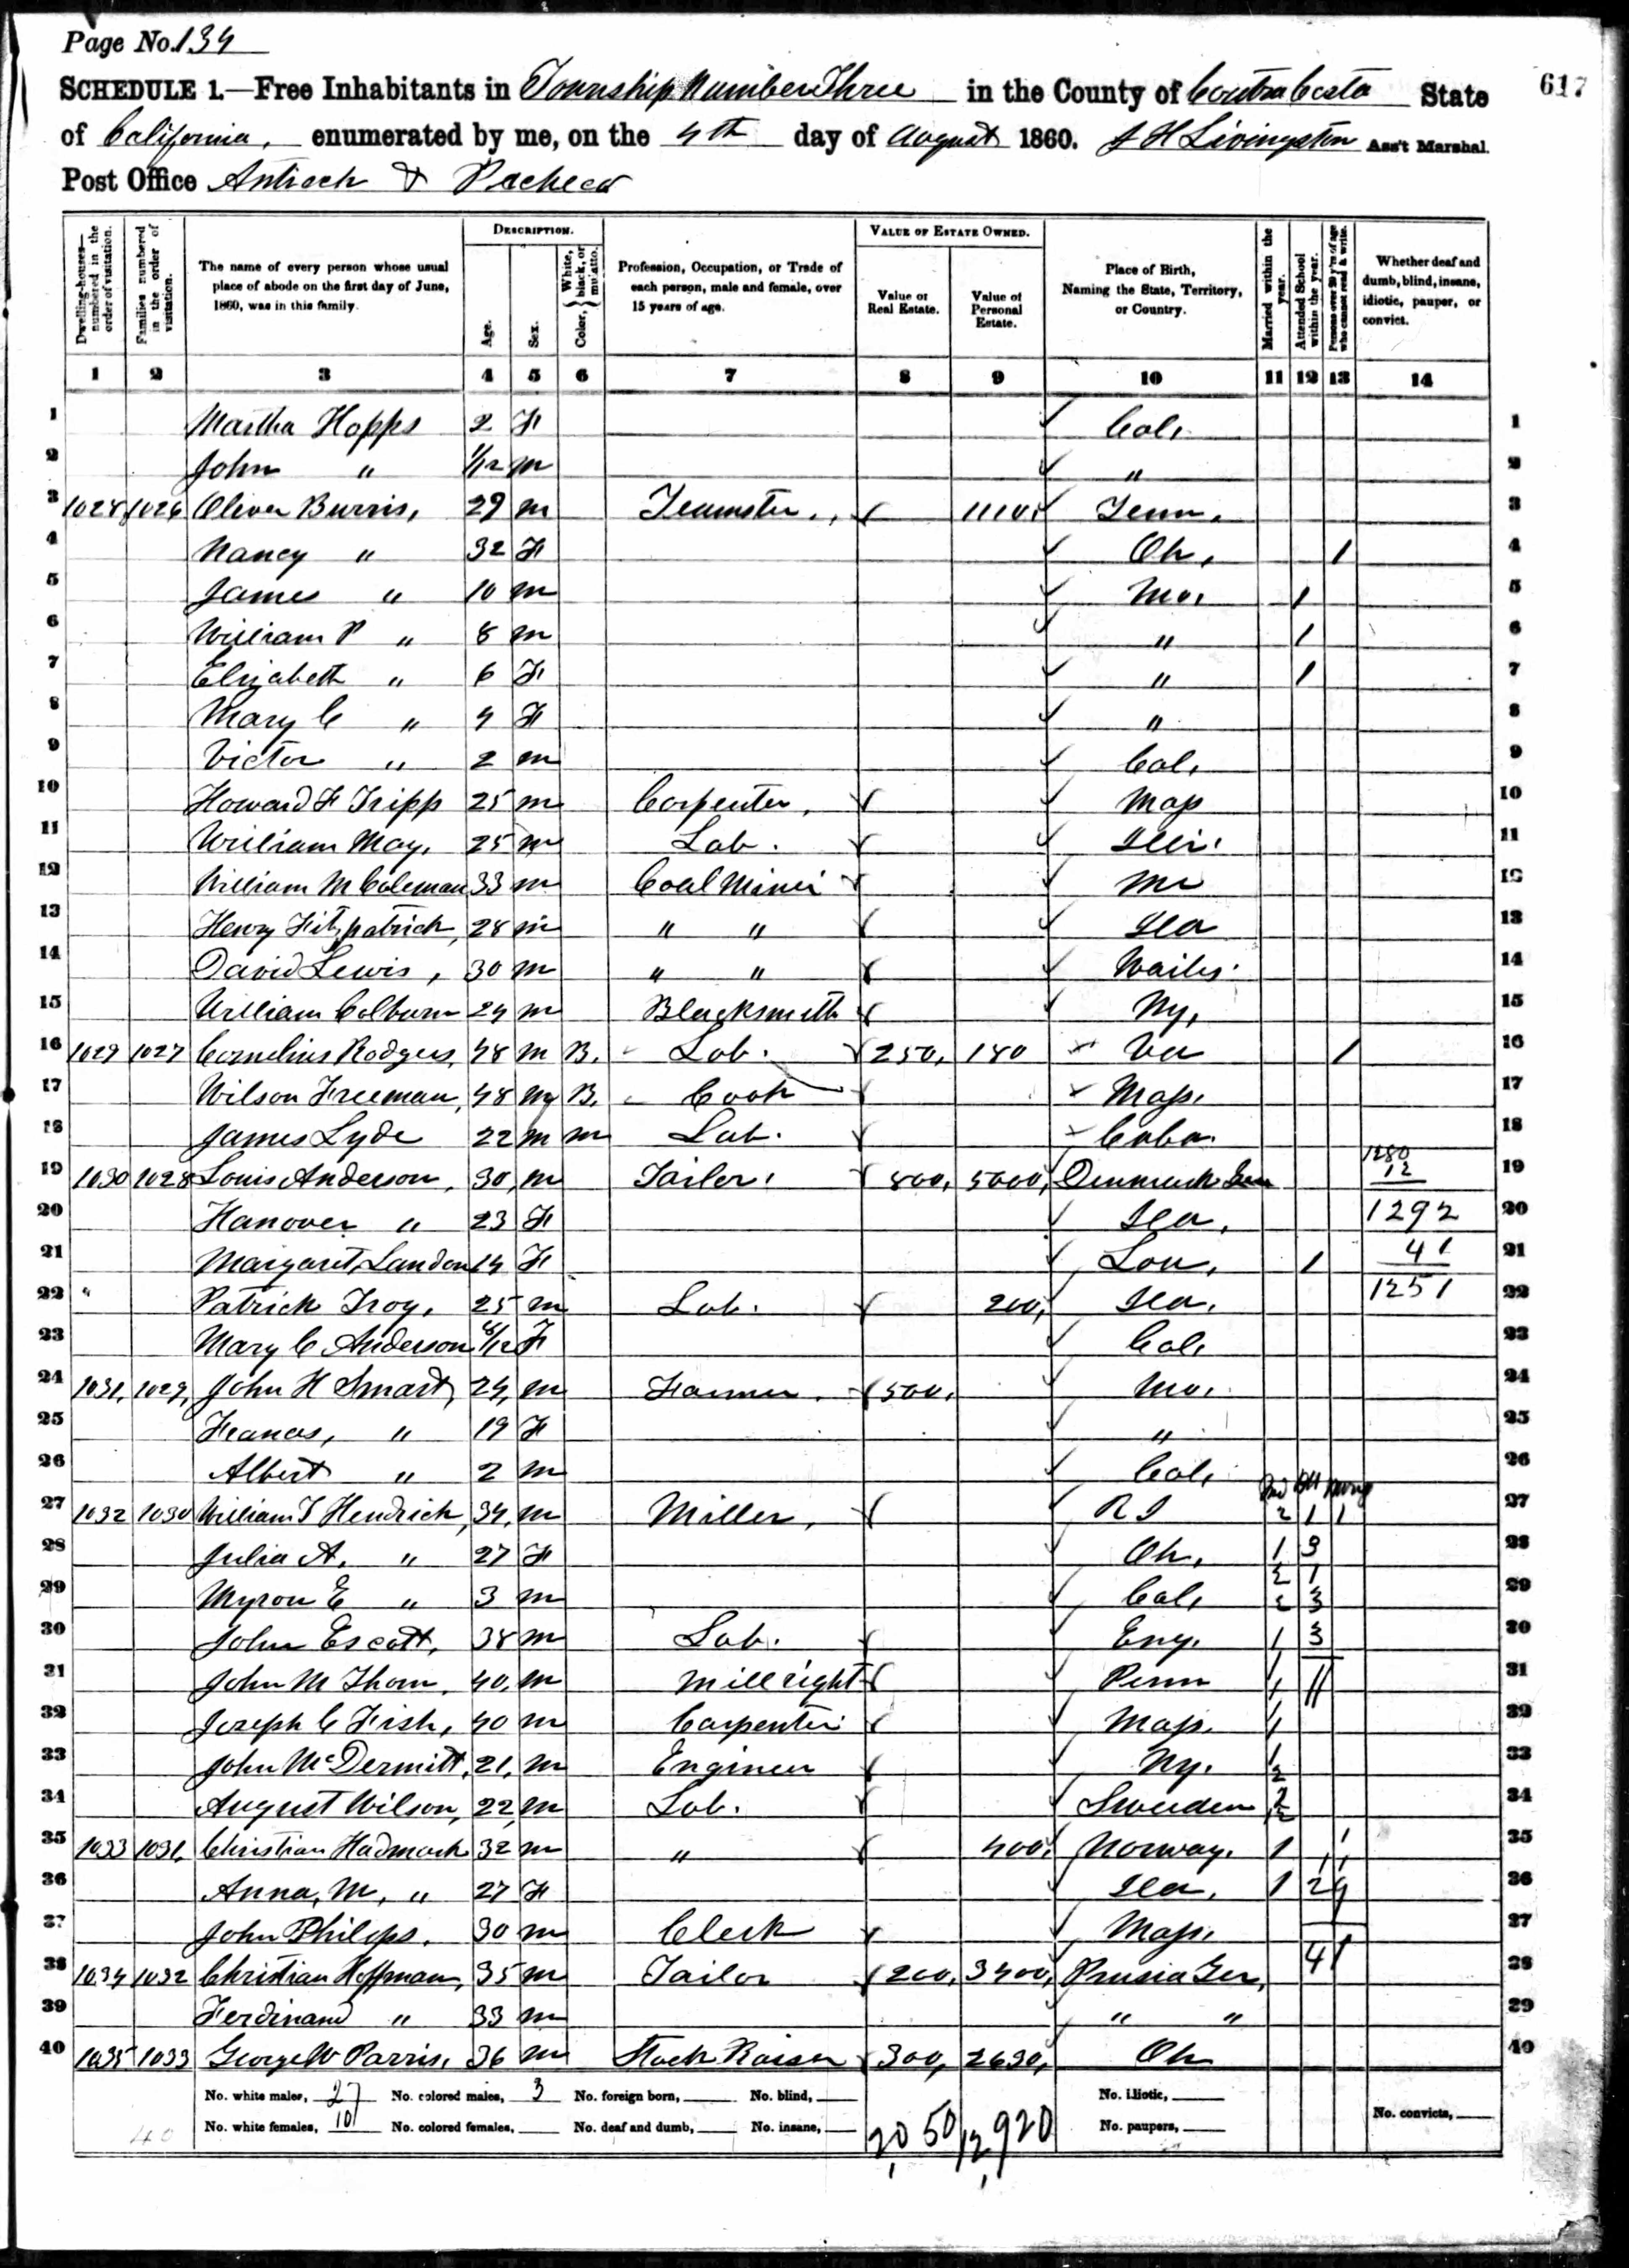 Page No. 134
SCHEDULE 1.—Free Inhabitants in Township Number Three in the County of Contra Costa State 617
of California, enumerated by me, on the 4th day of August 1860. J H Livingston Ass't Marshal.
Post Office Antioch & Pacheco
Dwelling-houses—numbered in the order of visitation. Families numbered in the order of visitation. The name of every person whose usual place of abode on the first day of June, 1860, was in this family. DESCRIPTION. Age. Sex. Color, White, black, or mulatto. Profession, Occupation, or Trade of each person, male and female, over 15 years of age. VALUE OF ESTATE OWNED. Value of Real Estate. Value of Personal Estate. Place of Birth, Naming the State, Territory, or Country. Married within the year. Attended School within the year. Persons over 20 y'rs of age who cannot read & write. Whether deaf and dumb, blind, insane, idiotic, pauper, or convict.
1 2 3 4 5 6 7 8 9 10 11 12 13 14
1 Martha Hopps 2 F Cal. 1
2 John " 1/12 m " 2
3 1028 1026 Oliver Burris, 29 m Teamster, Tenn. 3
4 Nancy " 32 F Oh, 1 4
5 James " 10 m Mo, 1 5
6 William P " 8 m " 1 6
7 Elizabeth " 6 F " 1 7
8 Mary C " 4 F " 8
9 Victor " 2 m Cal, 9
10 Howard F Tripp 25 m Carpenter, Mass 10
11 William May, 25 m Lab. Illi. 11
12 William M Coleman 33 m Coal Miner 12
13 Henry Fitzpatrick, 28 m " " Ila 13
14 David Lewis, 30 m " " Wailes. 14
15 William Colburn 24 m Blacksmith Ny, 15
16 1029 1027 Cornelius Rodgers, 48 m B. Lab. 250, 180 Va 1 16
17 Wilson Freeman, 48 m B. Cook Mass. 17
18 James Lyde 22 m m Lab. Cuba. 18
19 1030 1028 Louis Anderson, 30, m Tailor, 800, 5000, Denmark 1280 12 19
20 Hanover " 23 F Ila, 1292 20
21 Margaret Landon 14 F Lou, 1 41 21
22 " Patrick Troy, 25 m Lab. 200, Ila, 1251 22
23 Mary C Anderson 8/12 F Cal, 23
24 1031, 1029, John H Smart, 24, m Farmer. 500, Mo. 24
25 Frances, " 19 F " 25
26 Albert " 2 m Cal, 26
27 1032 1030 William T Hendrick, 34, m Miller, R I 2 1 1 27
28 Julia A. " 27 F Oh, 1 3 28
29 Myron E " 3 m Cal, 29
30 John Escott, 38 m Lab. Eng. 1 3 30
31 John M Thom, 40, m Millright Penn 1 11 31
32 Joseph C Fish, 40 m Carpenter Mass. 1 32
33 John McDermitt, 21, m Engineer Ny. 33
34 August Wilson, 22, m Lab. Sweeden 34
35 1033 1031, Christian Hadmark 32 m " 400, Norway. 1 35
36 Anna, M, " 27 F Ila, 1 29 36
37 John Philips. 30 m Clerk Mass, 37
38 1034 1032 Christian Hoffman, 35 m Tailor 200, 3400, Prusia Ger, 41 38
39 Ferdinand " 33 m " " 39
40 1035 1033 George W Parris, 36 m Stock Raiser 300, 2630, Oh 40
No. white males, 27 No. colored males, 3 No. foreign born, No. blind, No. idiotic,
40 No. white females, 10 No. colored females, No. deaf and dumb, No. insane, 2050 12,920 No. paupers, No. convicts,